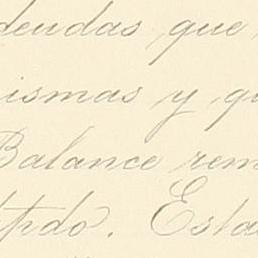 dendas que
ismas y qu
Balance rem
ltpdo. Estad